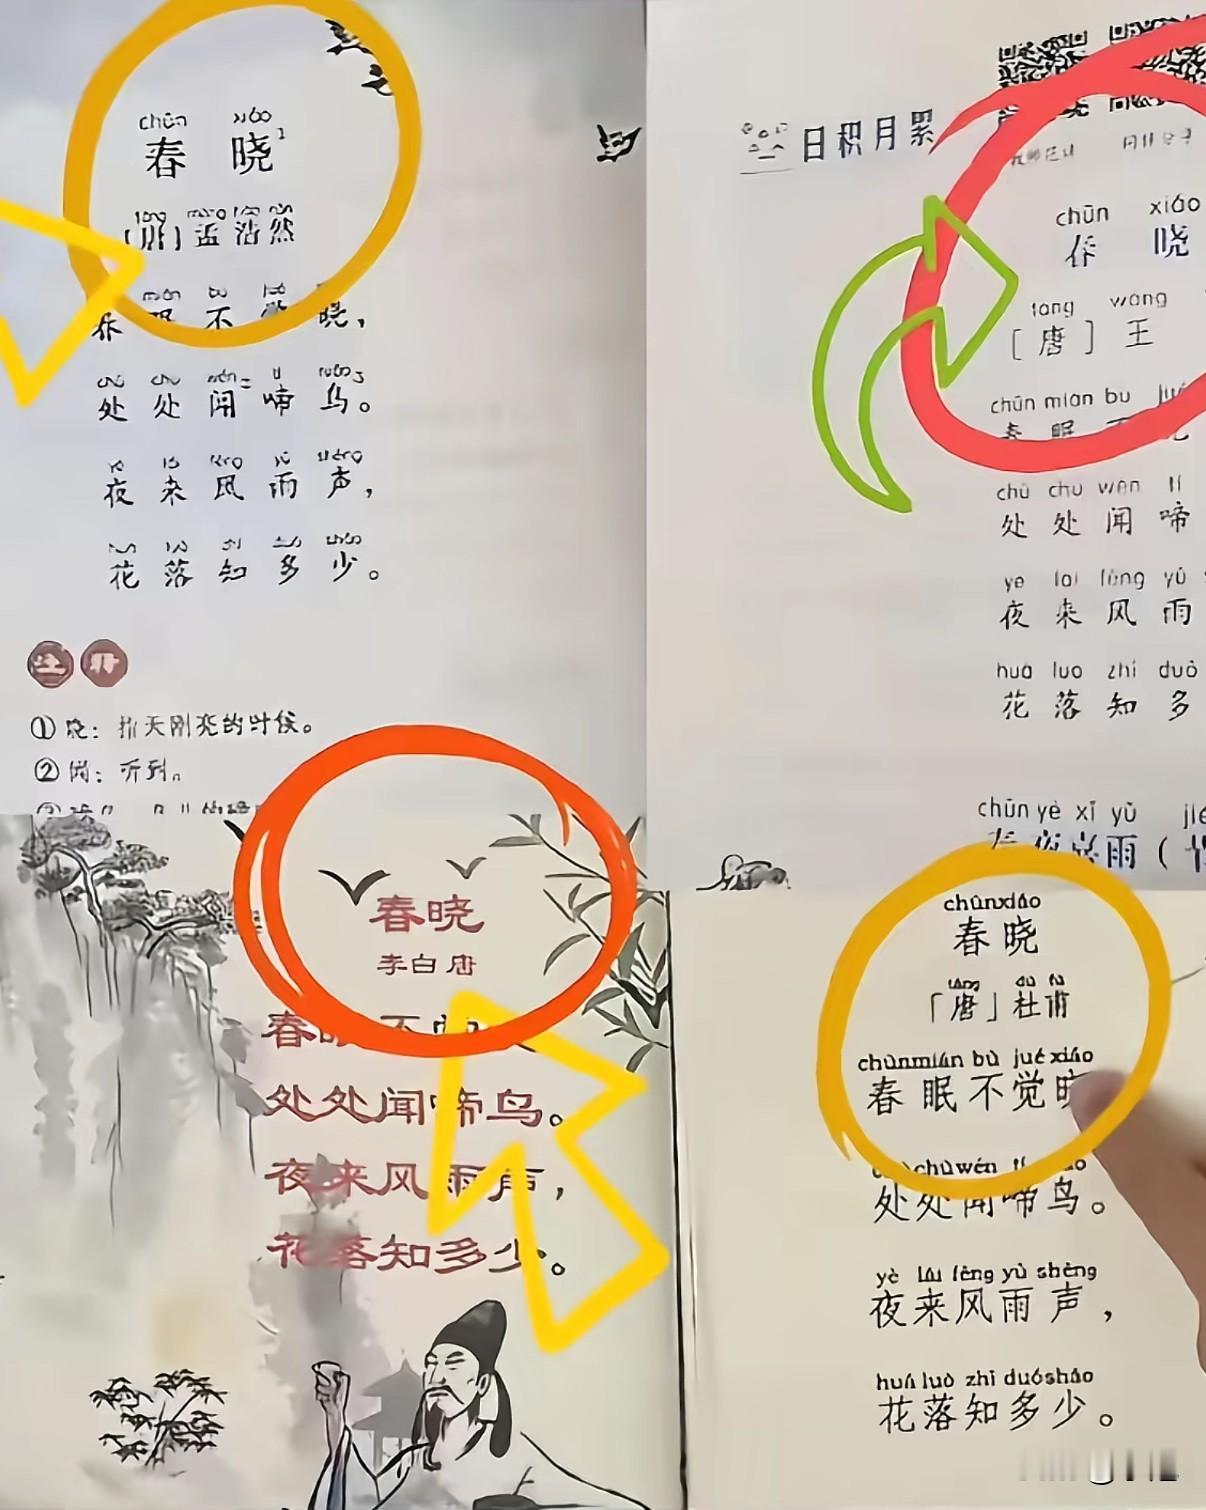 chūn xiǎo
春 晓¹
[唐] 孟浩然
春 眠 不 觉 晓，
处 处 闻² 啼 鸟。
夜 来 风 雨 声，
花 落 知 多 少。
注释
①晓：指天刚亮的时候。
②闻：听到。
日积月累
chūn xiǎo
春 晓
táng wáng
[唐] 王
chūn mián bù jué
春 眠 不
chù chù wén tí
处 处 闻 啼
yè lái fēng yǔ
夜 来 风 雨
huā luò zhī duō
花 落 知 多
chūn yè xǐ yǔ
春夜喜雨（节
春晓
李白 唐
春眠不
处处闻啼鸟。
夜来风雨声，
花落知多少。
chūnxiǎo
春晓
táng dù fǔ
「唐」杜甫
chūnmián bù jué xiǎo
春眠不觉晓
chùwén tí
处处闻啼鸟。
yè lái fēng yǔ shēng
夜来风雨声，
huā luò zhī duōshǎo
花落知多少。